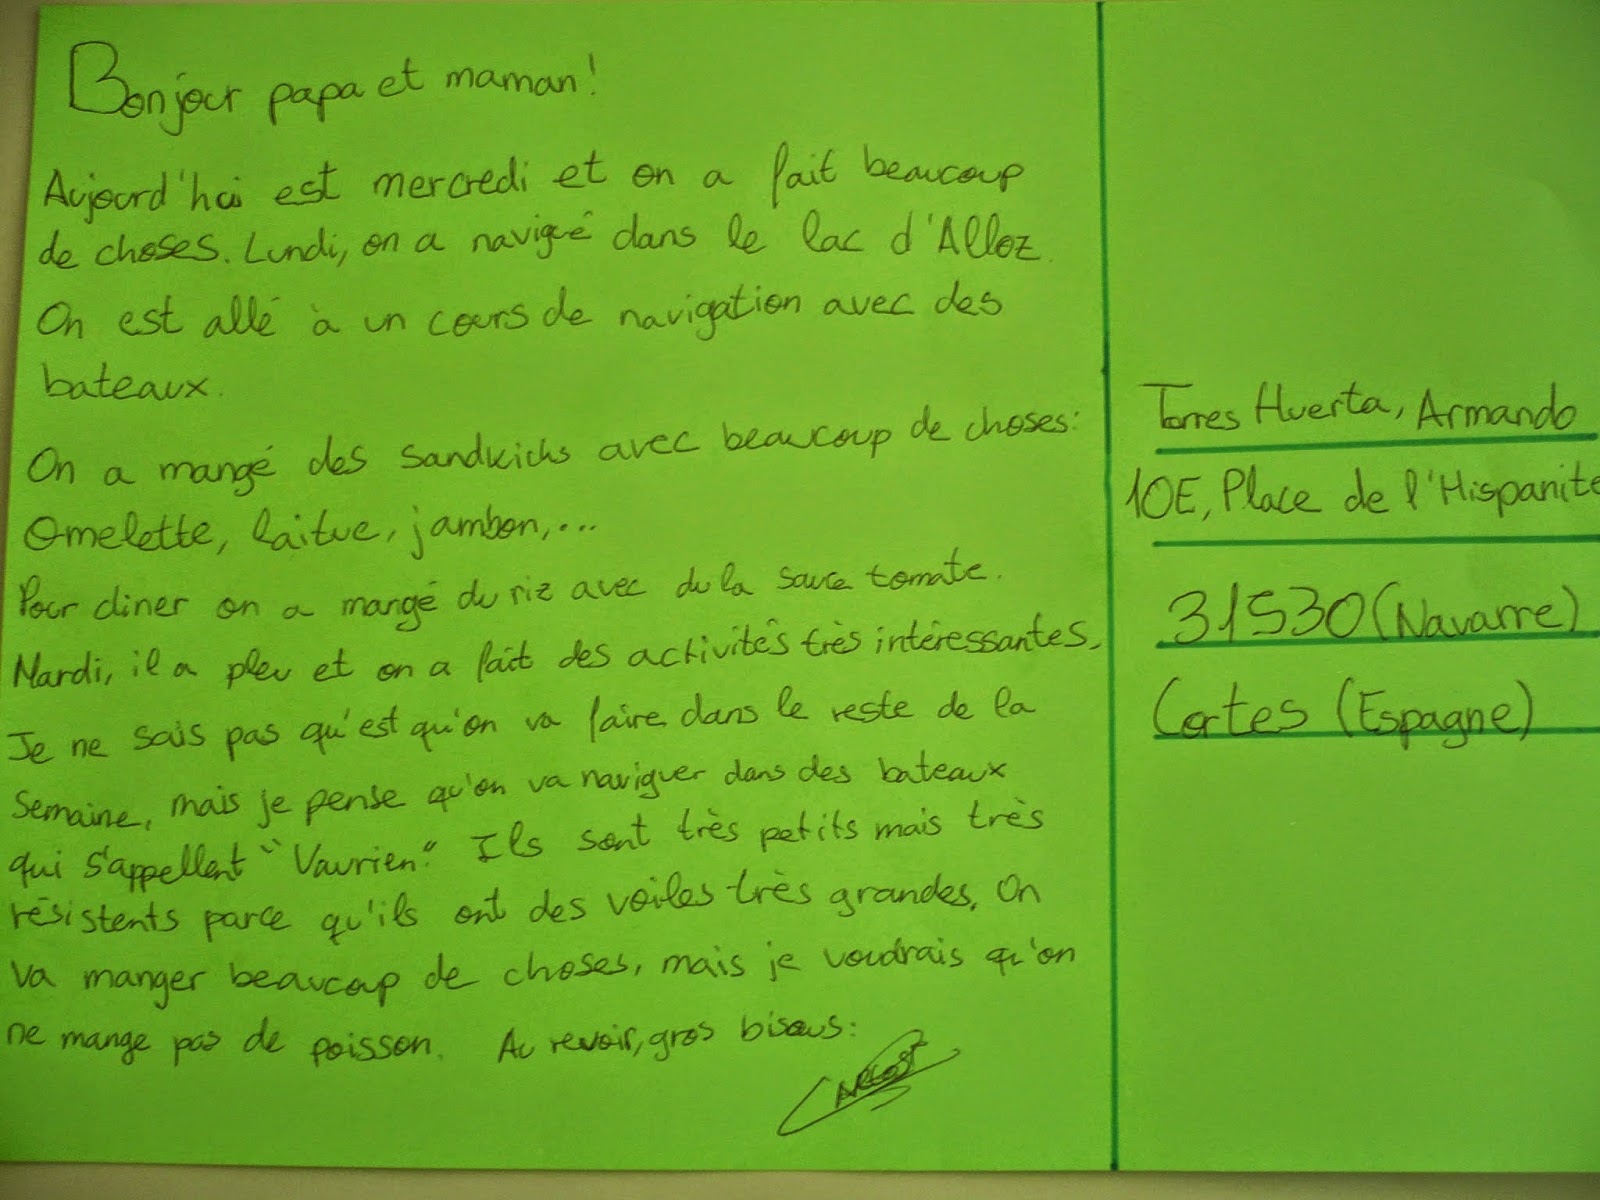 Bonjour papa et maman!
Aujourd'hui est mercredi et on a fait beaucoup
de choses. Lundi, on a navigué dans le lac d'Alloz.
On est allé à un cours de navigation avec des
bateaux.
On a mangé des sandwichs avec beaucoup de choses:
Omelette, laitue, jambon,...
Pour diner on a mangé du riz avec du la sauce tomate.
Mardi, il a pleu et on a fait des activités très intéressantes.
Je ne sais pas qu'est qu'on va faire dans le reste de la
semaine, mais je pense qu'on va naviguer dans des bateaux
qui s'appellent "Vaurien". Ils sont très petits mais très
résistents parce qu'ils ont des voiles très grandes. On
va manger beaucoup de choses, mais je voudrais qu'on
ne mange pas de poisson. Au revoir, gros bisous:
Torres Huerta, Armando
10E, Place de l'Hispanité
31530 (Navarre)
Cortes (Espagne)